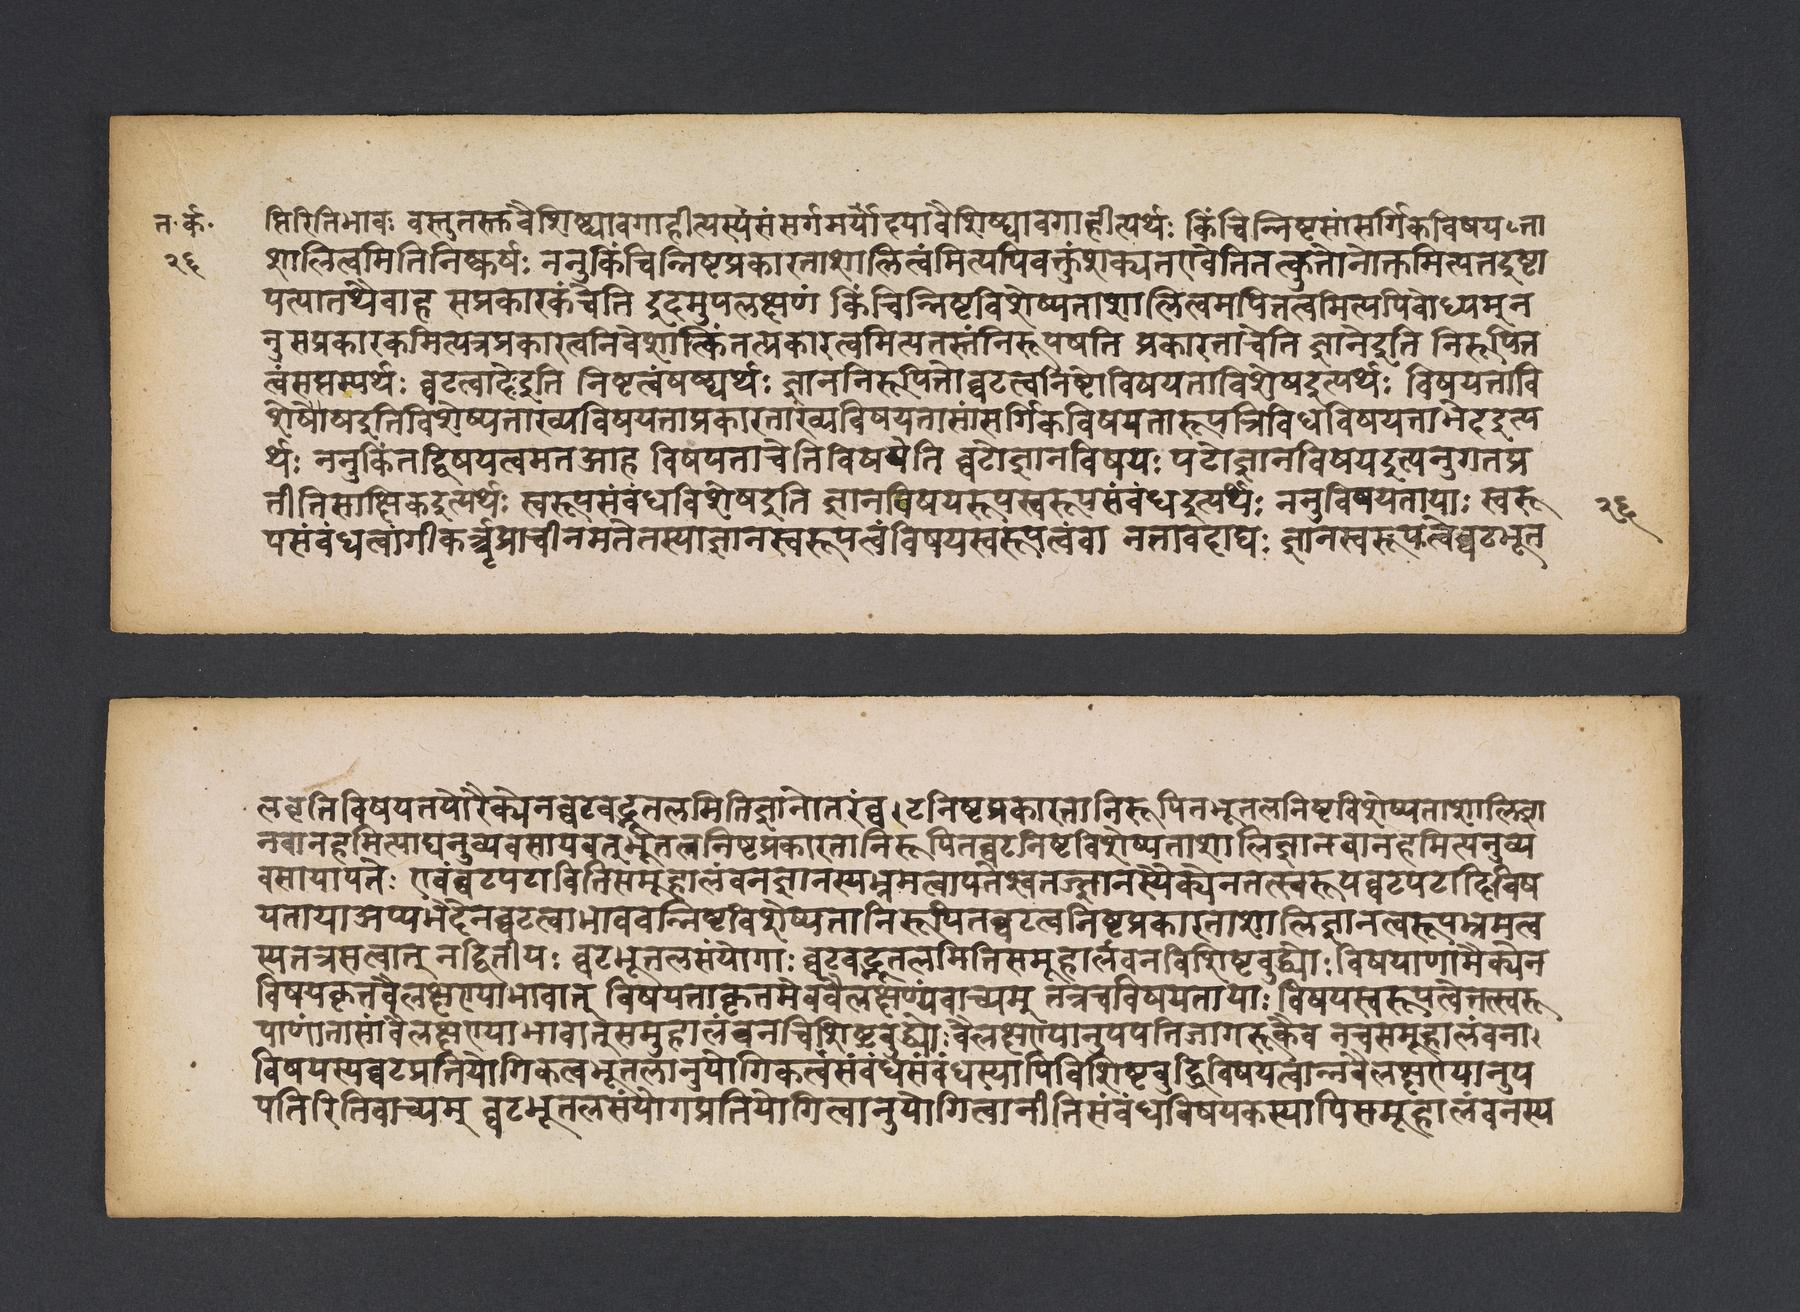 त॰र्क॰
२६
प्तिरितिभावः वस्तुतस्तुवैशिष्ट्यावगाहीत्यस्यसंसर्गमर्यादयावैशिष्ट्यावगाहीत्यर्थः किंचिन्निष्टसांसर्गिकविषयता
शालित्वमितिनिष्कर्षः ननुकिंचिन्निष्टप्रकारताशालित्वमित्यपिवक्तुंशक्यतएवेतितत्कुतोनोक्तमित्यतइष्टा
पत्यातथैवाह सप्रकारकंचेति इदमुपलक्षणं किंचिन्निष्टविशेष्यताशालित्वमपितत्वमित्यपिबोध्यम् न
नुसप्रकारकमित्यत्रप्रकारत्वनिवेशात्किंतत्प्रकारत्वमित्यतस्तंनिरूपयति प्रकारताचेति ज्ञानेइति निरूपित
त्वंसप्तम्यर्थः घटत्वादेरिति निष्टत्वंषष्ठ्यर्थः ज्ञाननिरूपितोघटत्वनिष्टोविषयताविशेषइत्यर्थः विषयतावि
शेषोषइतिविशेष्यताख्यविषयताप्रकारताख्यविषयतासांसर्गिकविषयतारूपत्रिविधविषयताभेदइत्य
र्थः ननुकिंतद्विषयत्वमतआह विषयताचेतिविषयेति घटोज्ञानविषयः पटोज्ञानविषयइत्यनुगतप्र
तीतिसाक्षिकइत्यर्थः स्वरूपसंबंधविशेषइति ज्ञानविषयरूपस्वरूपसंबंधइत्यर्थः ननुविषयतायाः स्वरू
पसंबंधत्वांगीकर्तृप्राचीनमतेतस्याज्ञानस्वरूपत्वंविषयस्वरूपत्वंवा नतावदाद्यः ज्ञानस्वरूपत्वेघटभूत
२६
लवेतिविषयतयोरैक्येनघटवद्भूतलमितिज्ञानोतरंघटनिष्टप्रकारतानिरूपितभूतलनिष्टविशेष्यताशालिज्ञा
नवानहमित्याद्यनुव्यवसायवत्भूतलनिष्टप्रकारतानिरूपितघटनिष्टविशेष्यताशालिज्ञानवानहमित्यनुव्य
वसायापतेः एवंघटपटावितिसमूहालंबनज्ञानस्यभ्रमत्वापतेश्चतज्ज्ञानस्यैक्येनतत्स्वरूपघटपटादिविष
यतायाअप्यभेदेनघटत्वाभाववन्निष्टविशेष्यतानिरूपितघटत्वनिष्टप्रकारताशालिज्ञानत्वरूपभ्रमत्व
स्यतत्रसत्वात् नद्वितीयः घटभूतलसंयोगाः घटवद्भूतलमितिसमूहालंबनविशिष्टबुद्ध्योः विषयाणामैक्येन
विषयकृतवैलक्षण्याभावात् विषयताकृतमेववैलक्षण्यंवाच्यम् तत्रचविषयतायाः विषयस्वरूपत्वेतत्स्वरू
पाणांतासांवैलक्षण्याभावात्समुहालंबनविशिष्टबुद्ध्योः वैलक्षण्यानुपपतिर्जागरूकैव नचसमूहालंबना
विषयस्यघटप्रतियोगिकत्वभूतलानुयोगिकत्वंसंबंधेसंबंधस्यापिविशिष्टबुद्धिविषयत्वान्नवैलक्षण्यानुप
पतिरितिवाच्यम् घटभूतलसंयोगप्रतियोगित्वानुयोगित्वानीतिसंबंधविषयकस्यापिसमूहालंबनस्य